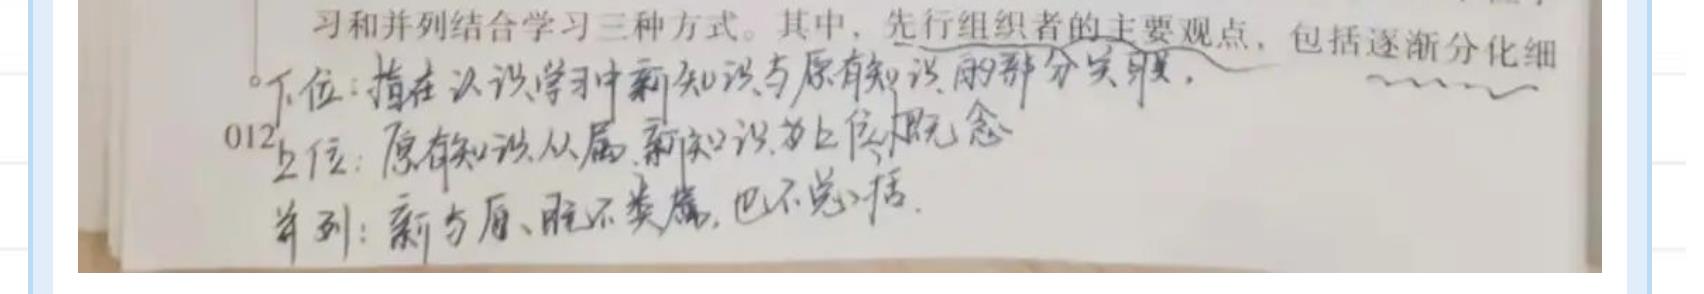 习和并列结合学习三种方式。其中,先行组织者的主要观点,包括逐渐分化细
下位:指在认识学习中新知识与原有知识的部分关联.
012
上位:原有知识从属,新知识为上位概念
并列:新与原、既不类属,也不总括.